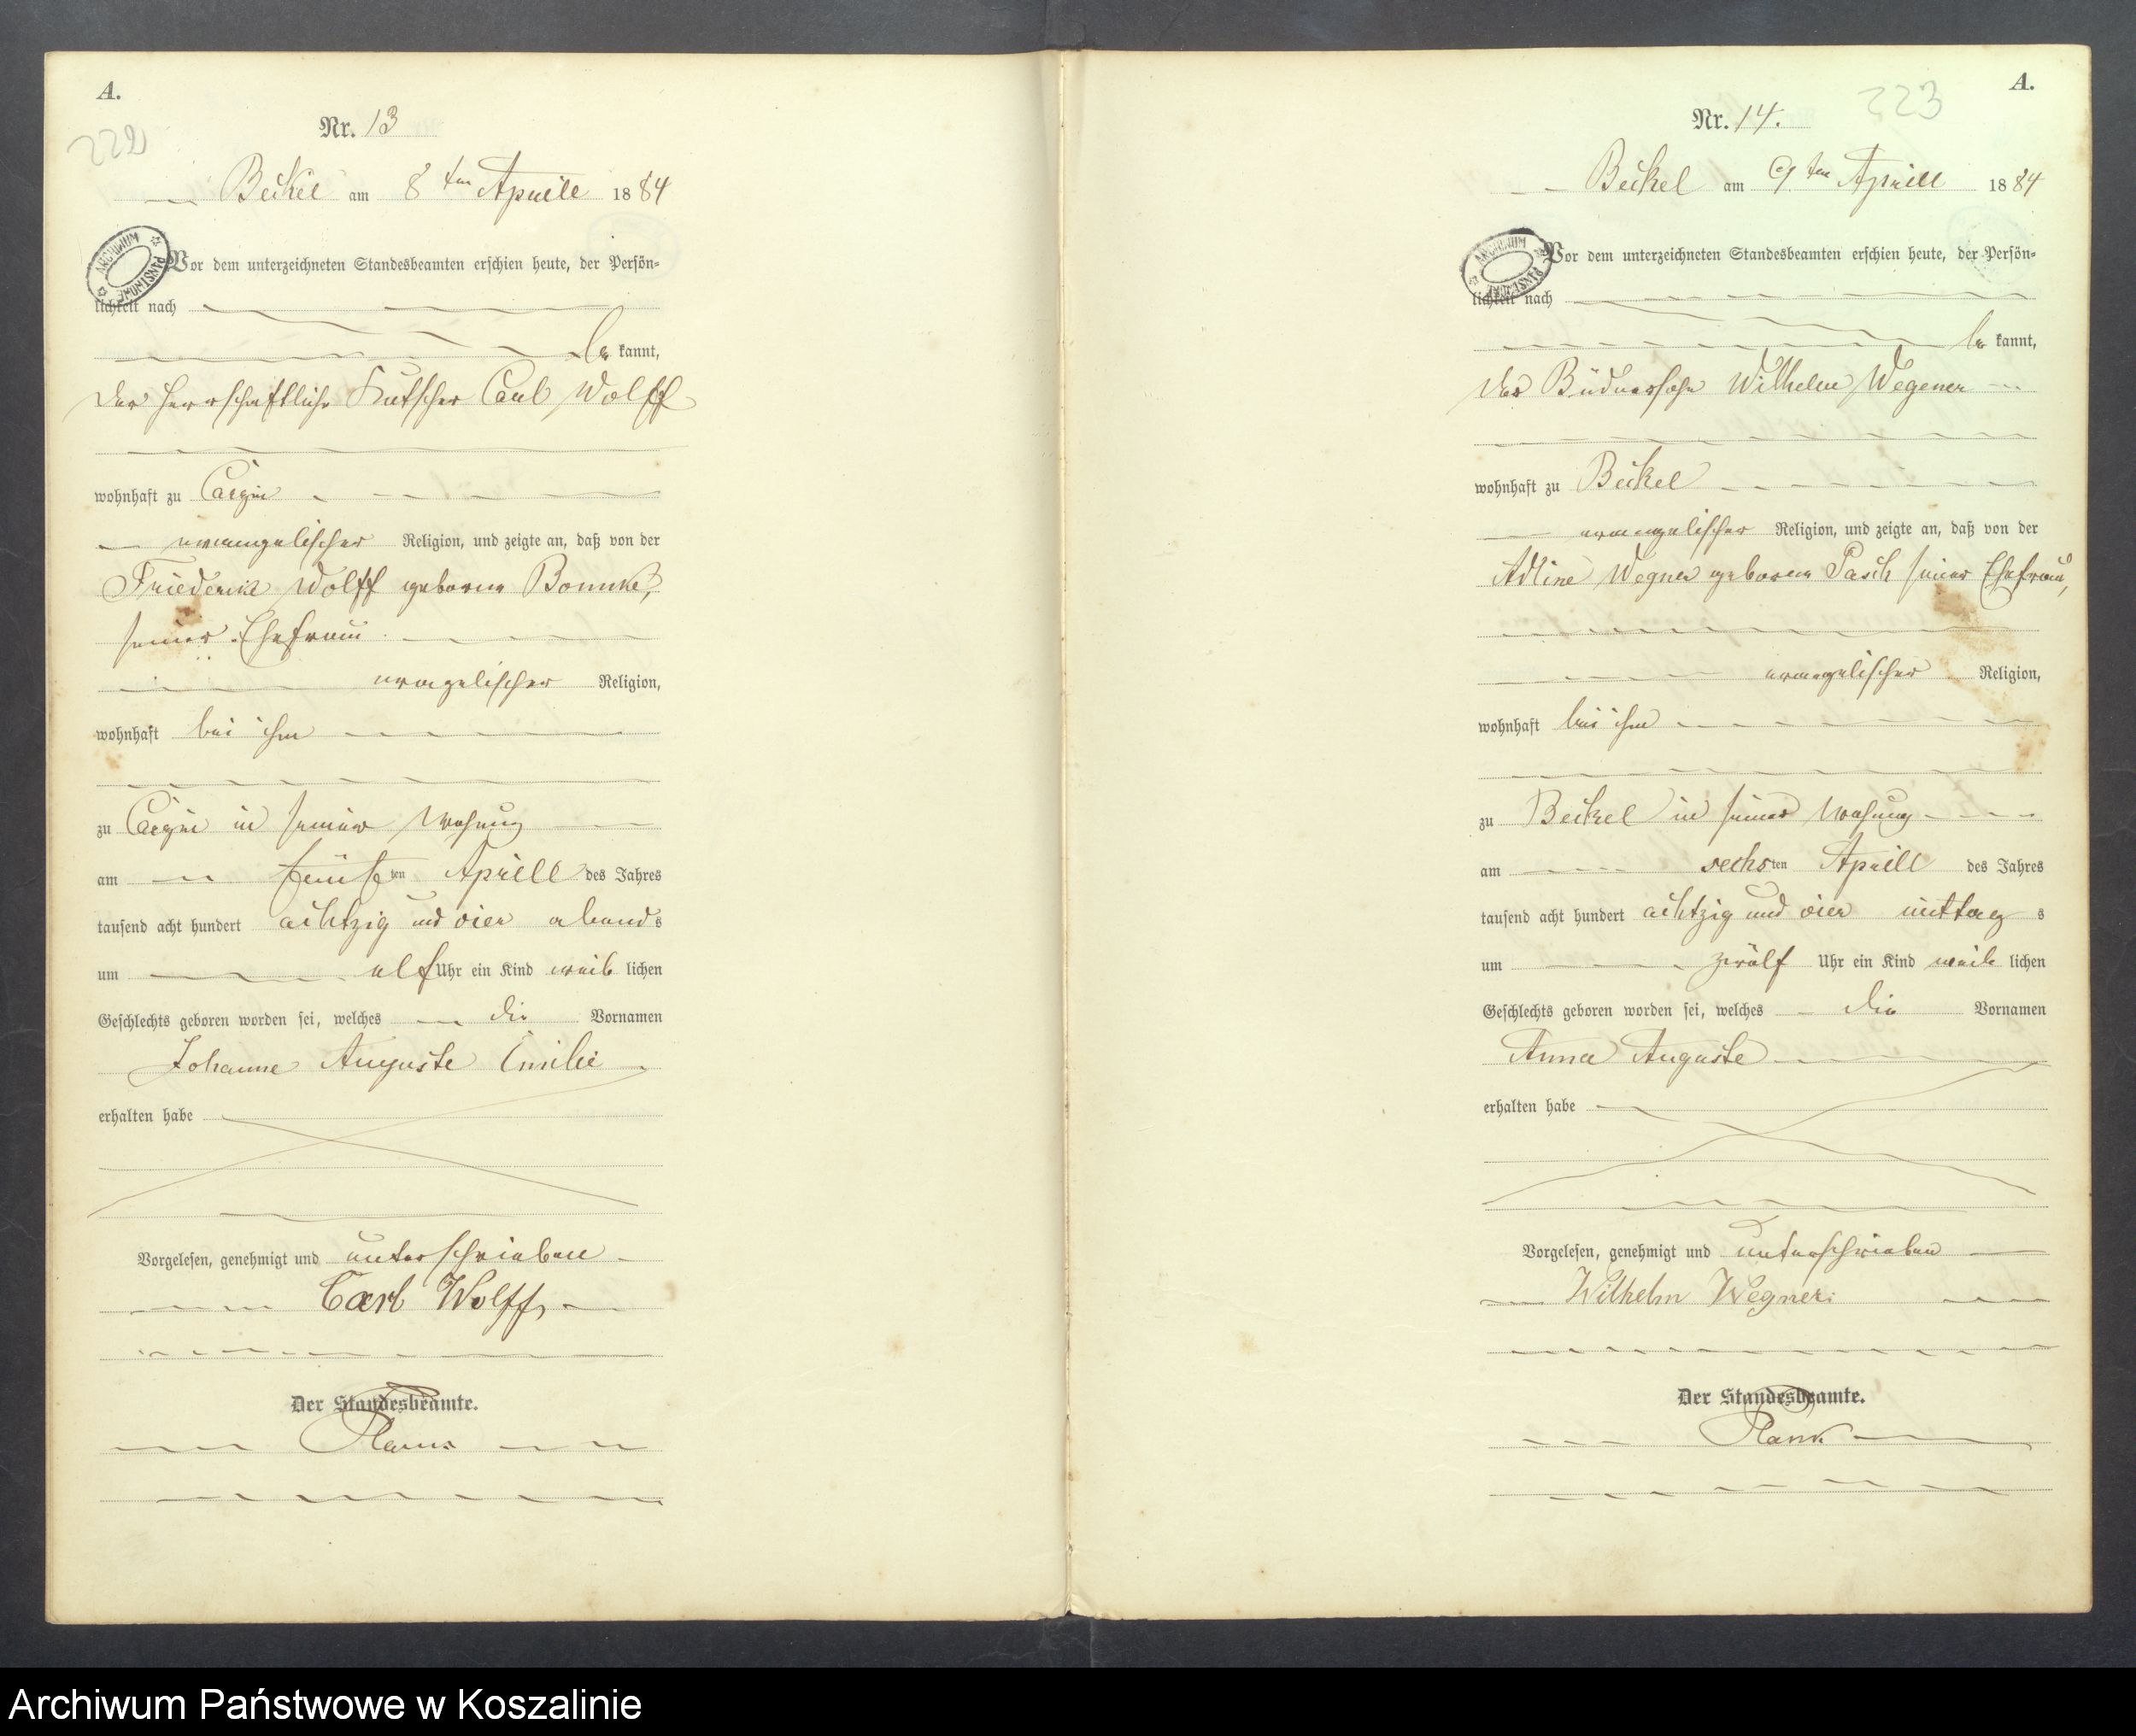 A.
222
Nr. 13
Beckel am 8ten Aprill 1884
ARCHIWUM PAŃSTWOWE
Vor dem unterzeichneten Standesbeamten erschien heute, der Persön=
lichkeit nach
be kannt,
der herrschaftliche Kutscher Carl Wolff
wohnhaft zu
evangelischer Religion, und zeigte an, daß von der
Friederike Wolff geborne
seiner Ehefrau
evangelischer Religion,
wohnhaft bei ihm
zu in seiner Wohnung
am fünften Aprill des Jahres
tausend acht hundert achtzig und vier abends
um elf Uhr ein Kind weib lichen
Geschlechts geboren worden sei, welches die Vornamen
Johanne Auguste Emilie
erhalten habe
Vorgelesen, genehmigt und unterschrieben
Carl Wolff
Der Standesbeamte.
A.
223
Nr. 14.
Beckel am 9ten Aprill 1884
ARCHIWUM PAŃSTWOWE
Vor dem unterzeichneten Standesbeamten erschien heute, der Persön=
lichkeit nach
be kannt,
der Büdnersohn Wilhelm Wegener
wohnhaft zu Beckel
evangelischer Religion, und zeigte an, daß von der
Adline Wegner geborne Pasch seiner Ehefrau,
evangelischer Religion,
wohnhaft bei ihm
zu Beckel in seiner Wohnung
am sechsten Aprill des Jahres
tausend acht hundert achtzig und vier mittag s
um zwölf Uhr ein Kind weib lichen
Geschlechts geboren worden sei, welches die Vornamen
Anna Auguste
erhalten habe
Vorgelesen, genehmigt und unterschrieben
Wilhelm Wegner.
Der Standesbeamte.
Archiwum Państwowe w Koszalinie